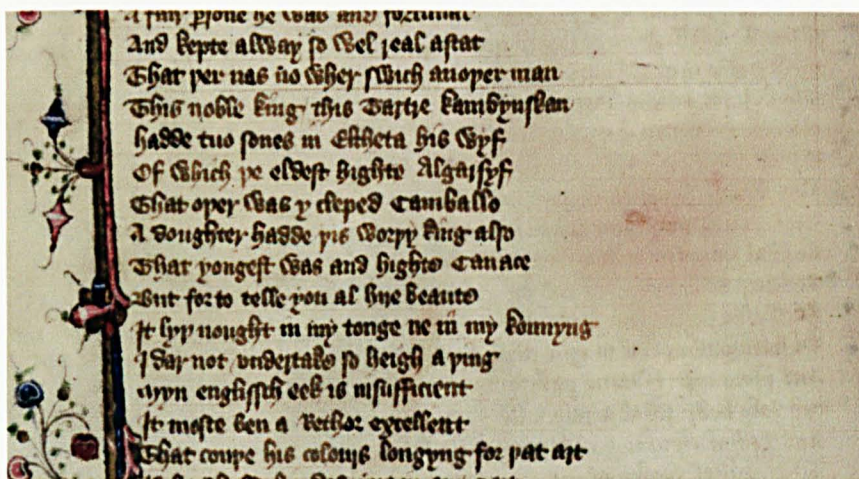 A fair þsone he was and fortunat
And kepte alway so wel real astat
That þer nas no wher swich anoþer man
This noble king this Tartre kambynskan
hadde tuo sones in Eltheta his wyf
Of which þe eldest highte Algarsyf
That oþer was y cleped Camballo
A doughter hadde þis worþy king also
That yongest was and highte Canace
But for to telle you al hire beaute
It lyþ nought in my tonge ne in my konnyng
I dar not vndertake so heigh a þing
Myn englissch eek is insufficient
It moste ben a Rethor excellent
That couþe his colours longyng for þat art